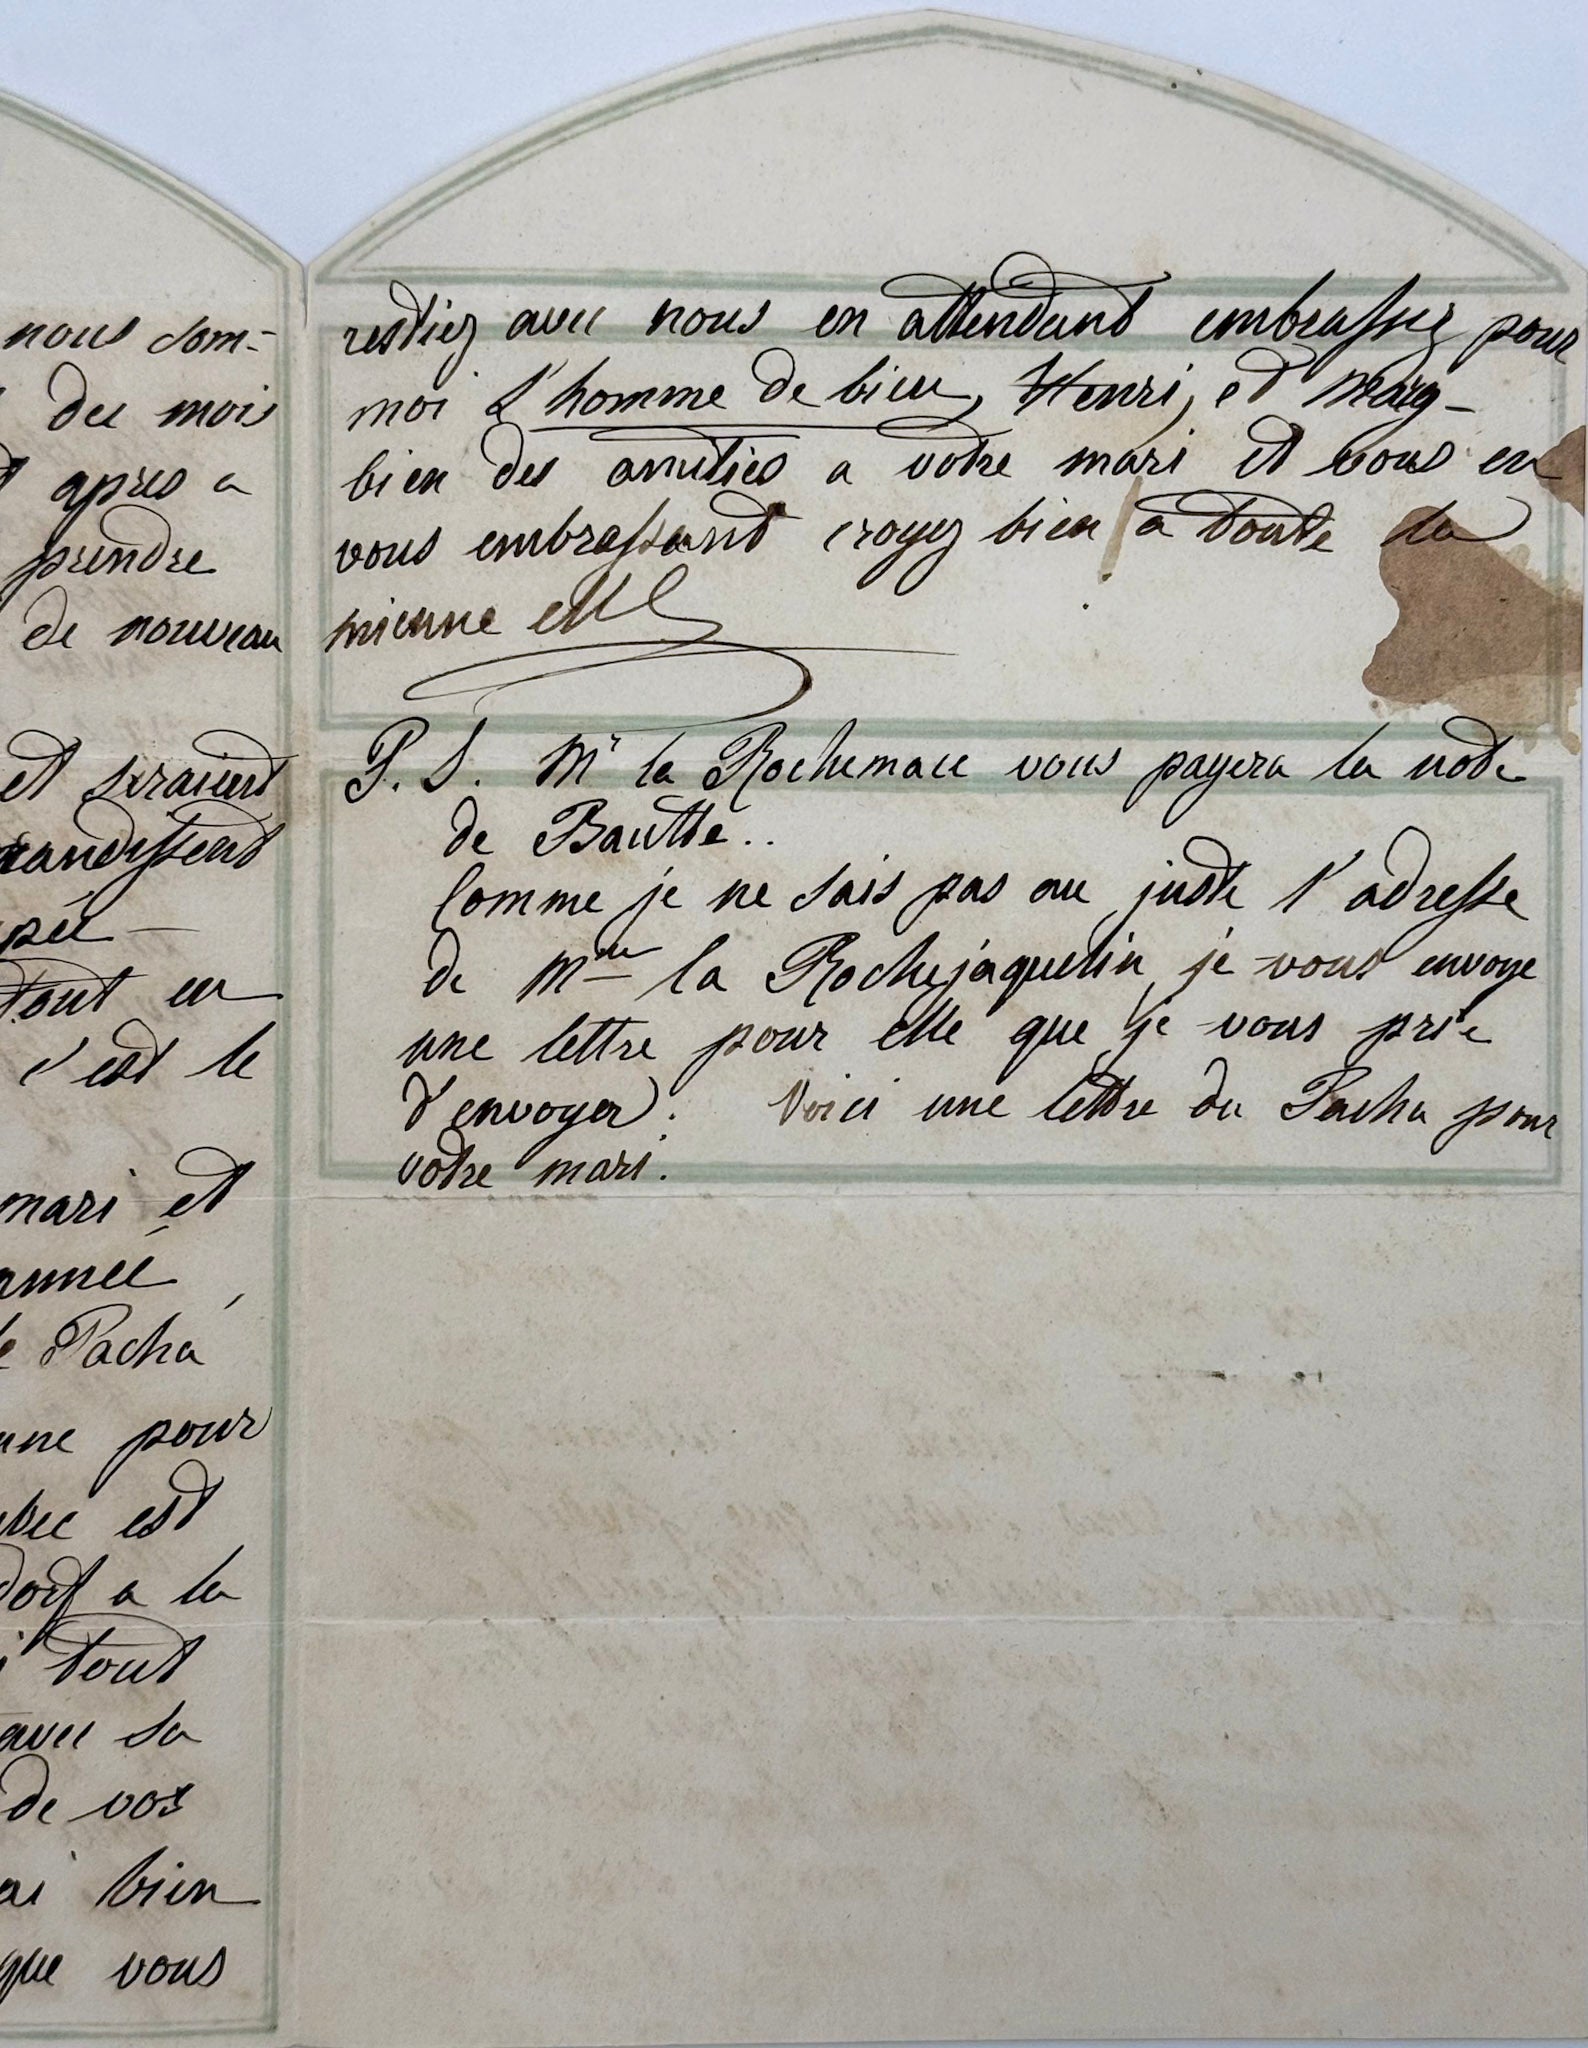 nous som-
du mois
apres a
prendre
de nouveau
et seraient
tout en
c'est le
mari et
année,
Pacha
une pour
est
a la
tout
avec sa
de vos
ai bien
que vous
restiez avec nous en attendant embrassez pour
moi l'homme de bien, Henri, et Marg-
bien des amitiés a votre mari et vous en
vous embrassant croyez bien a toute la
mienne
P.S. Mr la Rochemace vous payera la note
de Bautte..
Comme je ne sais pas au juste l'adresse
de Mme la Rochejaquelin, je vous envoye
une lettre pour elle que je vous prie
d'envoyer. Voici une lettre du Pacha pour
votre mari.